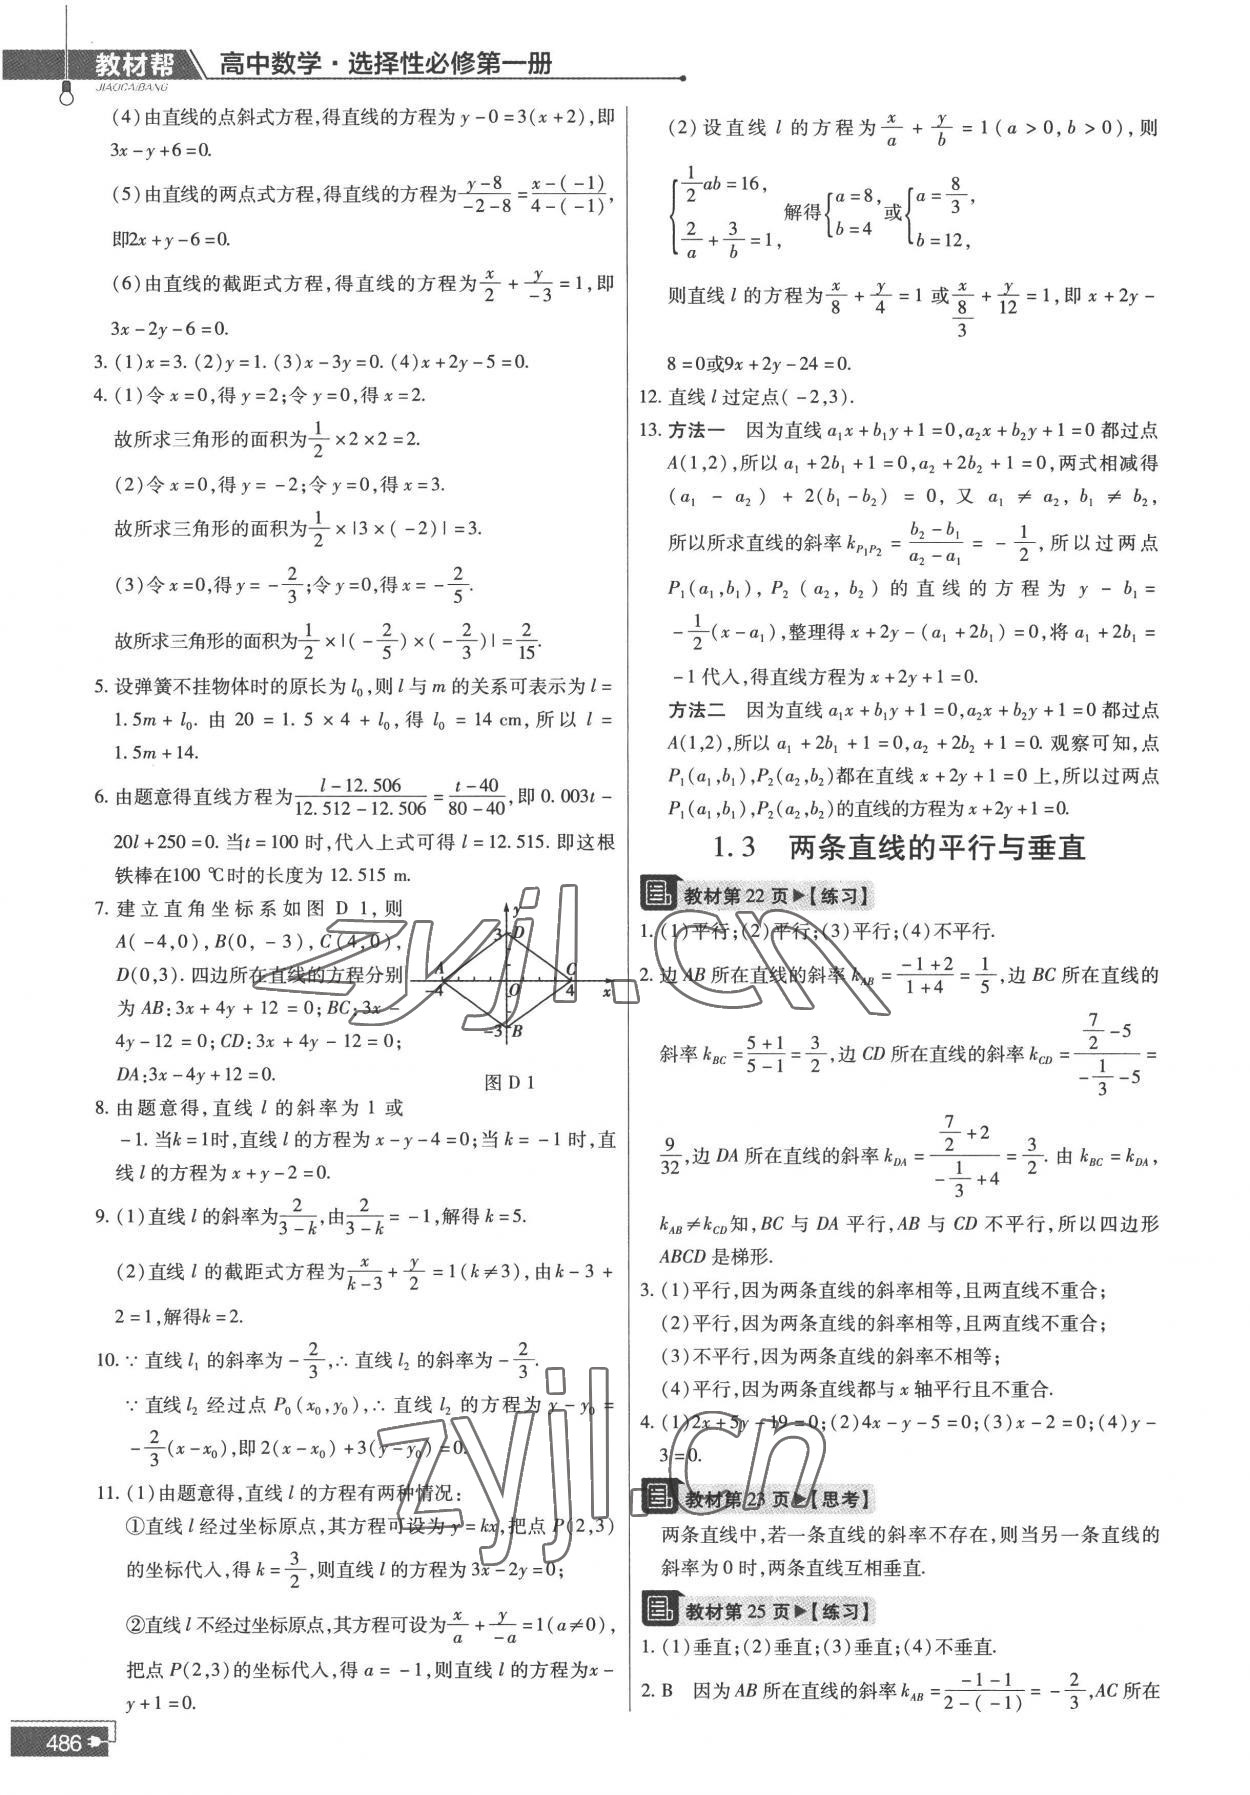 教材帮 高中数学·选择性必修第一册
JIAOCAIBANG
(4)由直线的点斜式方程,得直线的方程为 y-0=3(x+2),即
3x-y+6=0.
(5)由直线的两点式方程,得直线的方程为 (y-8)/(-2-8)=(x-(-1))/(4-(-1)),
即2x+y-6=0.
(6)由直线的截距式方程,得直线的方程为 x/2+y/(-3)=1,即
3x-2y-6=0.
3. (1)x=3. (2)y=1. (3)x-3y=0. (4)x+2y-5=0.
4. (1)令 x=0,得 y=2;令 y=0,得 x=2.
故所求三角形的面积为 1/2×2×2=2.
(2)令 x=0,得 y=-2;令 y=0,得 x=3.
故所求三角形的面积为 1/2×|3×(-2)|=3.
(3)令 x=0,得 y=-2/3;令 y=0,得 x=-2/5.
故所求三角形的面积为 1/2×|(-2/5)×(-2/3)|=2/15.
5. 设弹簧不挂物体时的原长为 l₀,则 l 与 m 的关系可表示为 l=
1.5m+l₀. 由 20=1.5×4+l₀,得 l₀=14 cm,所以 l=
1.5m+14.
6. 由题意得直线方程为 (l-12.506)/(12.512-12.506)=(t-40)/(80-40),即 0.003t-
20l+250=0. 当t=100 时,代入上式可得 l=12.515. 即这根
铁棒在100 ℃时的长度为 12.515 m.
7. 建立直角坐标系如图 D 1,则
A(-4,0),B(0,-3),C(4,0),
D(0,3). 四边所在直线的方程分别
为 AB:3x+4y+12=0;BC:3x-
4y-12=0;CD:3x+4y-12=0;
DA:3x-4y+12=0.
y
3 D
A C
-4 O 4 x
-3 B
图 D 1
8. 由题意得,直线 l 的斜率为 1 或
-1. 当k=1时,直线 l 的方程为 x-y-4=0;当 k=-1 时,直
线 l 的方程为 x+y-2=0.
9. (1)直线 l 的斜率为 2/(3-k),由 2/(3-k)=-1,解得 k=5.
(2)直线 l 的截距式方程为 x/(k-3)+y/2=1(k≠3),由 k-3+
2=1,解得k=2.
10. ∵ 直线 l₁ 的斜率为-2/3,∴ 直线 l₂ 的斜率为-2/3.
∵ 直线 l₂ 经过点 P₀(x₀,y₀),∴ 直线 l₂ 的方程为 y-y₀=
-2/3(x-x₀),即 2(x-x₀)+3(y-y₀)=0.
11. (1)由题意得,直线 l 的方程有两种情况:
①直线 l 经过坐标原点,其方程可设为 y=kx,把点 P(2,3)
的坐标代入,得 k=3/2,则直线 l 的方程为 3x-2y=0;
②直线 l 不经过坐标原点,其方程可设为 x/a+y/(-a)=1(a≠0),
把点 P(2,3)的坐标代入,得 a=-1,则直线 l 的方程为x-
y+1=0.
(2)设直线 l 的方程为 x/a+y/b=1(a>0,b>0),则
{1/2ab=16, 2/a+3/b=1, 解得{a=8, b=4 或{a=8/3, b=12,
则直线 l 的方程为 x/8+y/4=1 或 x/(8/3)+y/12=1,即 x+2y-
8=0或9x+2y-24=0.
12. 直线 l 过定点(-2,3).
13. 方法一 因为直线 a₁x+b₁y+1=0,a₂x+b₂y+1=0 都过点
A(1,2),所以 a₁+2b₁+1=0,a₂+2b₂+1=0,两式相减得
(a₁-a₂)+2(b₁-b₂)=0,又 a₁≠a₂,b₁≠b₂,
所以所求直线的斜率 k_{P₁P₂}=(b₂-b₁)/(a₂-a₁)=-1/2,所以过两点
P₁(a₁,b₁),P₂(a₂,b₂)的直线的方程为 y-b₁=
-1/2(x-a₁),整理得 x+2y-(a₁+2b₁)=0,将 a₁+2b₁=
-1 代入,得直线方程为 x+2y+1=0.
方法二 因为直线 a₁x+b₁y+1=0,a₂x+b₂y+1=0 都过点
A(1,2),所以 a₁+2b₁+1=0,a₂+2b₂+1=0. 观察可知,点
P₁(a₁,b₁),P₂(a₂,b₂)都在直线 x+2y+1=0 上,所以过两点
P₁(a₁,b₁),P₂(a₂,b₂)的直线的方程为 x+2y+1=0.
1.3 两条直线的平行与垂直
教材第 22 页▶【练习】
1. (1)平行;(2)平行;(3)平行;(4)不平行.
2. 边 AB 所在直线的斜率 k_{AB}=(-1+2)/(1+4)=1/5,边 BC 所在直线的
斜率 k_{BC}=(5+1)/(5-1)=3/2,边 CD 所在直线的斜率 k_{CD}=(7/2-5)/(-1/3-5)=
9/32,边 DA 所在直线的斜率 k_{DA}=(7/2+2)/(-1/3+4)=3/2. 由 k_{BC}=k_{DA},
k_{AB}≠k_{CD}知,BC 与 DA 平行,AB 与 CD 不平行,所以四边形
ABCD 是梯形.
3. (1)平行,因为两条直线的斜率相等,且两直线不重合;
(2)平行,因为两条直线的斜率相等,且两直线不重合;
(3)不平行,因为两条直线的斜率不相等;
(4)平行,因为两条直线都与 x 轴平行且不重合.
4. (1)2x+5y-19=0;(2)4x-y-5=0;(3)x-2=0;(4)y-
3=0.
教材第 23 页▶【思考】
两条直线中,若一条直线的斜率不存在,则当另一条直线的
斜率为 0 时,两条直线互相垂直.
教材第 25 页▶【练习】
1. (1)垂直;(2)垂直;(3)垂直;(4)不垂直.
2. B 因为 AB 所在直线的斜率 k_{AB}=(-1-1)/(2-(-1))=-2/3,AC 所在
486
zyjl.cn
zyjl.cn